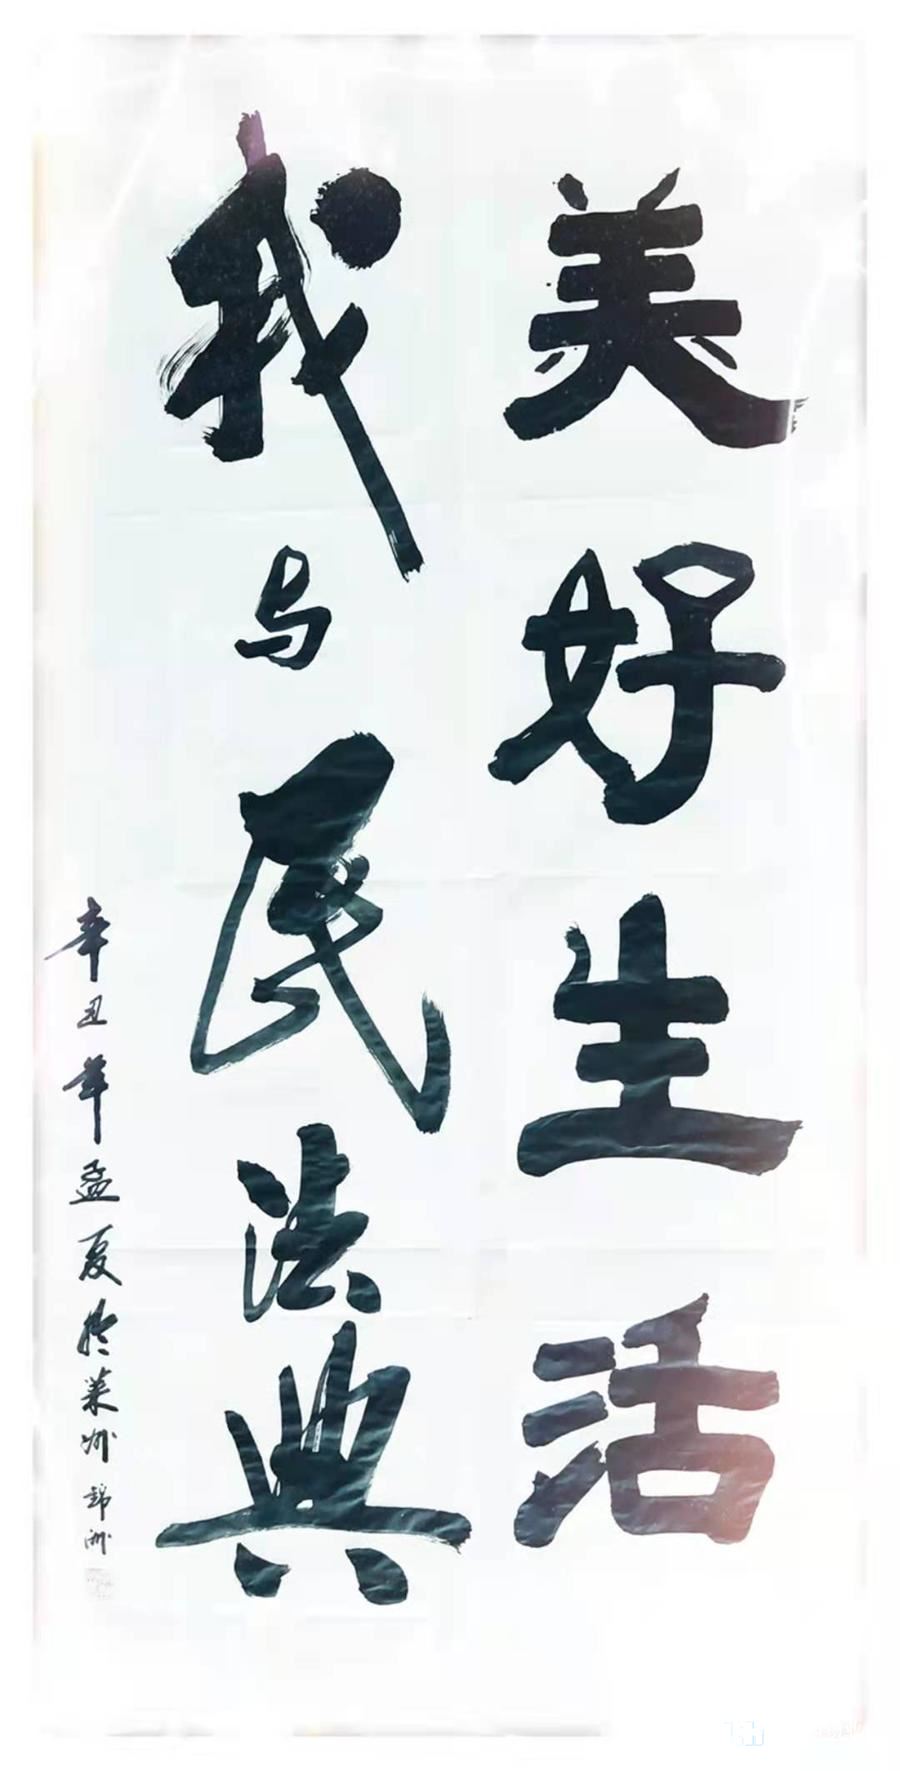 美好生活
我与民法典
辛丑年孟夏於莱州锦洲